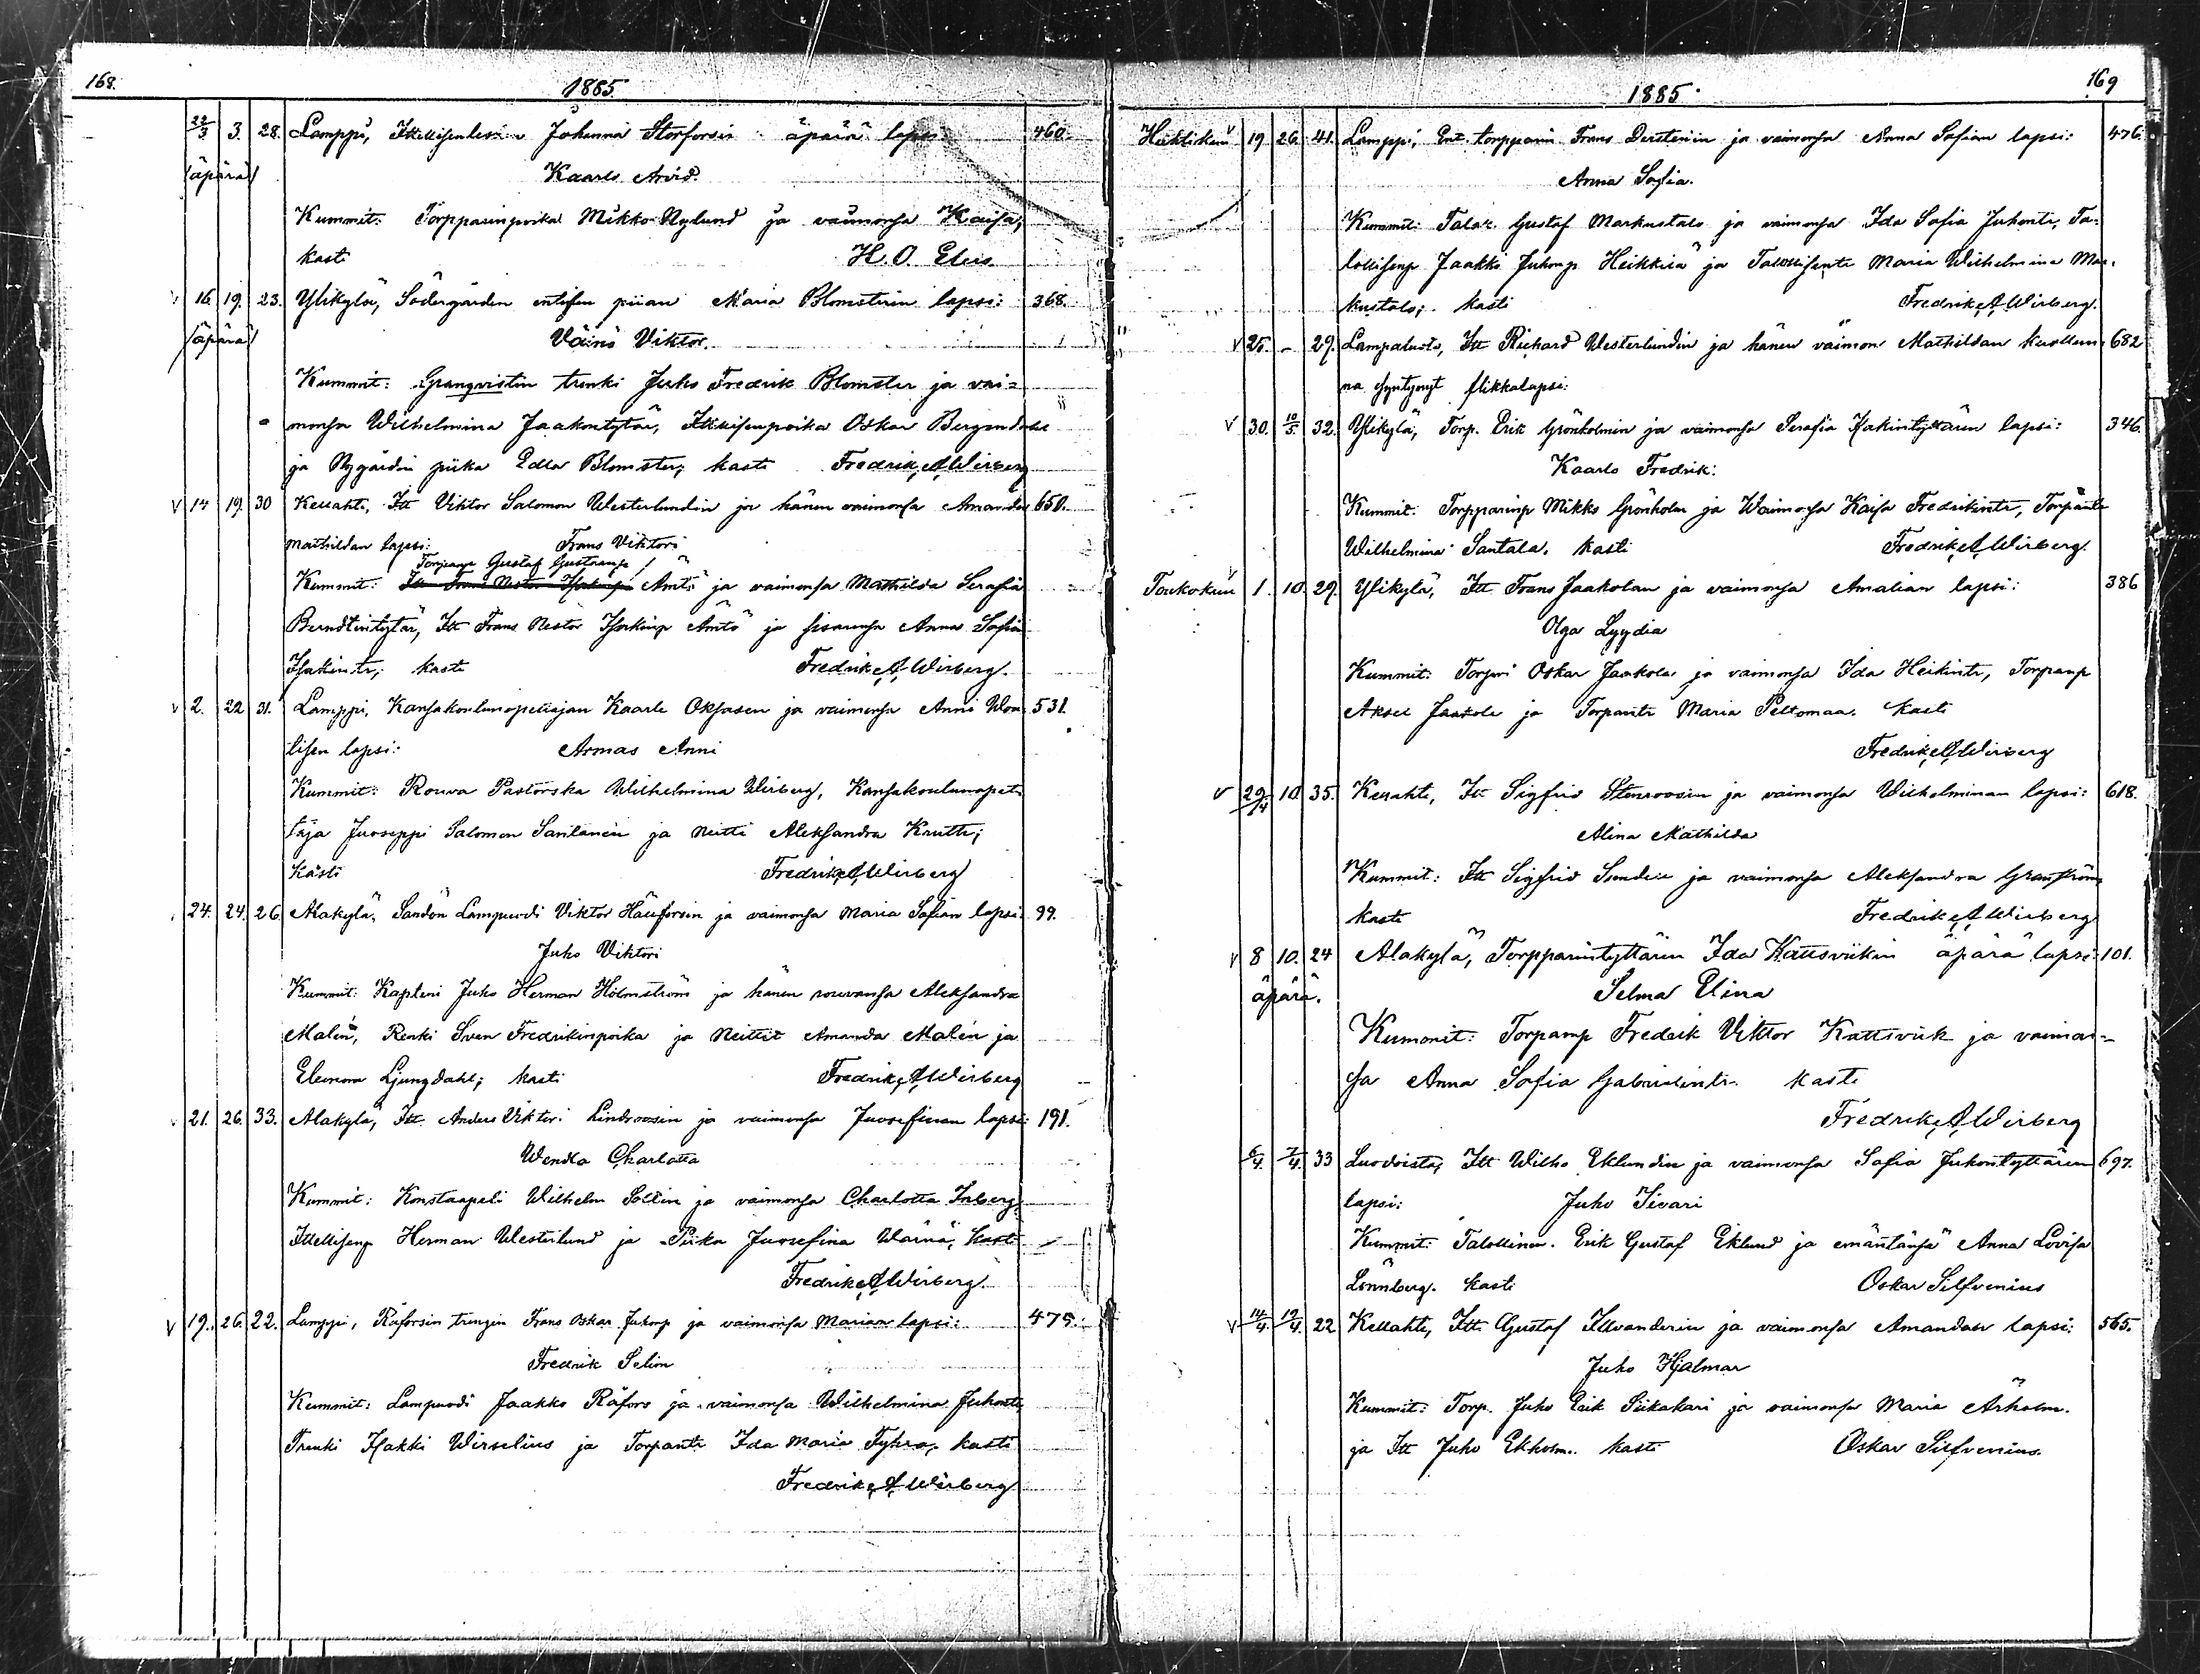 168. 1885.
22/3 3. 28. Lamppi, Itsellisenlesken Johanna Storforsin äpärä lapsi: 460.
(äpärä) Kaarlo Arvid.
Kummit: Torpparinpoika Mikko Nylund ja vaimonsa Kaisa;
kasti H. O. Elvis.
v 16. 19. 23. Ylikylä, Södergårdin entisen piian Maria Blomsterin lapsi: 368.
(äpärä) Väinö Viktor.
Kummit: Granqvistin trenki Juho Fredrik Blomster ja vai=
monsa Wilhelmina Jaakontytär, Itsellisenpoika Oskar Bergendahl
ja Nygårdin piika Edla Blomster; kasti Fredrik A Wirberg
v 14 19. 30 Kellahti, Itt Viktor Salomon Westerlundin ja hänen vaimonsa Amanda 650.
Mathildan lapsi: Frans Viktori
Torpanp Gustaf Gustavinp
Kummit: Itt Frans Nestor Isakinp Ämtö ja vaimonsa Mathilda Serafia
Berndtintytär, Itt Frans Nestor Isakinp Ämtö ja sisarensa Anna Sofia
Isakintr; kasti Fredrik A Wirberg.
v 2. 22 31. Lamppi, Kansakoulunopettajan Kaarle Oksasen ja vaimonsa Anni
lisen lapsi: Armas Anni 531.
Kummit: Rouva Pastorska Wilhelmina Wirberg, Kansakoulunopet=
taja Juoseppi Salomon Santanen ja Neitti Aleksandra Krutti;
kasti Fredrik A Wirberg
24. 24. 26. Alakylä, Sandön Lampuodi Viktor Häuforsin ja vaimonsa Maria Sofian lapsi: 99.
Juho Viktori
Kummit: Kapteni Juho Herman Holmström ja hänen rouvansa Aleksandra
Malén, Renki Sven Fredrikinpoika ja Neittit Amanda Malén ja
Eleonora Ljungdahl; kasti Fredrik A Wirberg
v 21. 26. 33. Alakylä, Itt Anders Viktori Lindroosin ja vaimonsa Juosefinan lapsi: 191.
Wendla Charlotta
Kummit: Konstaapeli Wilhelm Sollin ja vaimonsa Charlotta Inberg,
Itsellisenp Herman Westerlund ja Piika Juosefina Wärnä; kasti
Fredrik A Wirberg.
v 19. 26. 22. Lamppi, Råforsin trengin Frans Oskar Juhonp ja vaimonsa Marian lapsi: 475.
Fredrik Selim
Kummit: Lampuodi Jaakko Råfors ja vaimonsa Wilhelmina Juhontr,
Trenki Isakki Wirselius ja Torpantr Ida Maria Fyhra; kasti
Fredrik A Wirberg
1885. 169
Huhtikuu v 19 26. 41. Lamppi, Ent. torpparin Frans Derstenin ja vaimonsa Anna Sofian lapsi: 476.
Anna Sofia.
Kummit: Taloll. Gustaf Markustalo ja vaimonsa Ida Sofia Juhontr, Ta=
lollisenp Jaakki Juhonp Heikkilä ja Talollisentr Maria Wilhelmina Mar=
kustalo; kasti Fredrik A Wirberg.
v 25. - 29. Lampaluoto, Itt Richard Westerlundin ja hänen vaimon Mathildan kuollee= 682
na syntynyt flikkalapsi:
v 30. 10/5. 32. Ylikylä, Torp. Erik Grönholmin ja vaimonsa Serafia Isakintyttären lapsi: 346.
Kaarlo Fredrik:
Kummit: Torpparinp Mikko Grönholm ja Waimonsa Kaisa Fredrikintr, Torpantr
Wilhelmina Santala. kasti Fredrik A Wirberg.
Toukokuu v 1. 10. 29. Ylikylä, Itt Frans Jaakolan ja vaimonsa Amalian lapsi: 386
Olga Lyydia
Kummit: Torpari Oskar Jaakola ja vaimonsa Ida Heikintr, Torpanp
Aksel Jaakola ja Torpantr Maria Peltomaa. kasti
Fredrik A Wirberg
v 29/4 10. 35. Kellahti, Itt Sigfrid Stenroosin ja vaimonsa Wilhelminan lapsi: 618.
Alina Mathilda
Kummit: Itt Sigfrid Sundell ja vaimonsa Aleksandra Granström,
kasti Fredrik A Wirberg
v 8 10. 24 Alakylä, Torpparintyttären Ida Kattsviikin äpärä lapsi: 101.
äpärä. Selma Elina
Kummit: Torpanp Fredrik Viktor Kattsviik ja vaimon=
sa Anna Sofia Gabrielintr. kasti
Fredrik A Wirberg
6/4. 7/4. 33 Luodoista, Itt Wilho Eklundin ja vaimonsa Sofia Juhontyttären 697.
lapsi: Juho Sivari
Kummit: Talollinen. Erik Gustaf Eklund ja emäntänsä Anna Lovisa
Lönnberg. kasti Oskar Silfvenius
v 14/4. 19/4. 22 Kellahti, Itt. Gustaf Illvanderin ja vaimonsa Amandan lapsi: 565.
Juho Hjalmar
Kummit: Torp. Juho Erik Siikakari ja vaimonsa Maria Åkholm.
ja Itt Juho Ekholm. kasti Oskar Silfvenius.